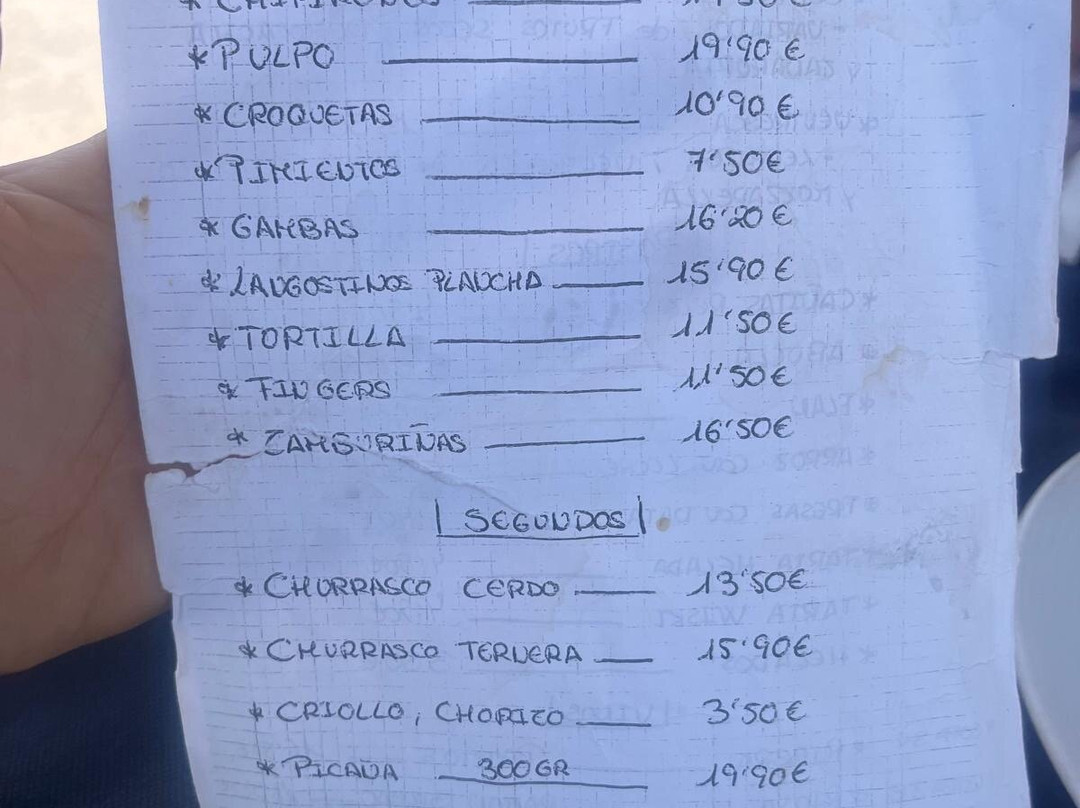 * PULPO 19'90 €
* CROQUETAS 10'90 €
* PIMIENTOS 7'50€
* GAMBAS 16'20 €
* LANGOSTINOS PLANCHA 15'90 €
* TORTILLA 11'50€
* FINGERS 11'50€
* ZAMBURIÑAS 16'50€
SEGUNDOS
* CHURRASCO CERDO 13'50€
* CHURRASCO TERNERA 15'90€
* CRIOLLO, CHORIZO 3'50€
* PICAÑA 300GR 19'90€